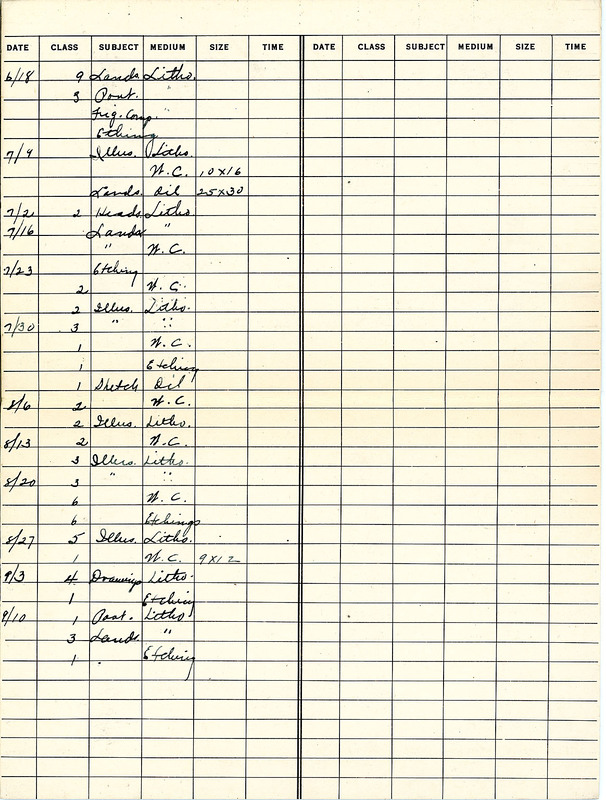 DATE CLASS SUBJECT MEDIUM SIZE TIME DATE CLASS SUBJECT MEDIUM SIZE TIME
6/18 9 Lands Litho.
3 Port.
Fig. Comp. "
Etching
7/9 Illus. Litho.
W.C. 10x16
Lands. Oil 25x30
7/2 2 Heads Litho
7/16 Lands "
" W.C.
7/23 Etching
2 W.C.
2 Illus. Litho.
7/30 3 " "
1 W.C.
1 Etching
1 Sketch Oil
8/6 2 W.C.
2 Illus. Litho.
8/13 2 W.C.
3 Illus. Litho.
8/20 3 " "
6 W.C.
6 Etchings
8/27 5 Illus. Litho.
1 W.C. 9x12
9/3 4 Drawings Litho.
1 Etching
9/10 1 Port. Litho
3 Lands. "
1 Etching